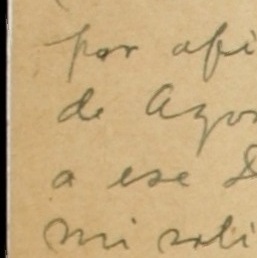 por ofi
de Agos
a ese D
mi soli